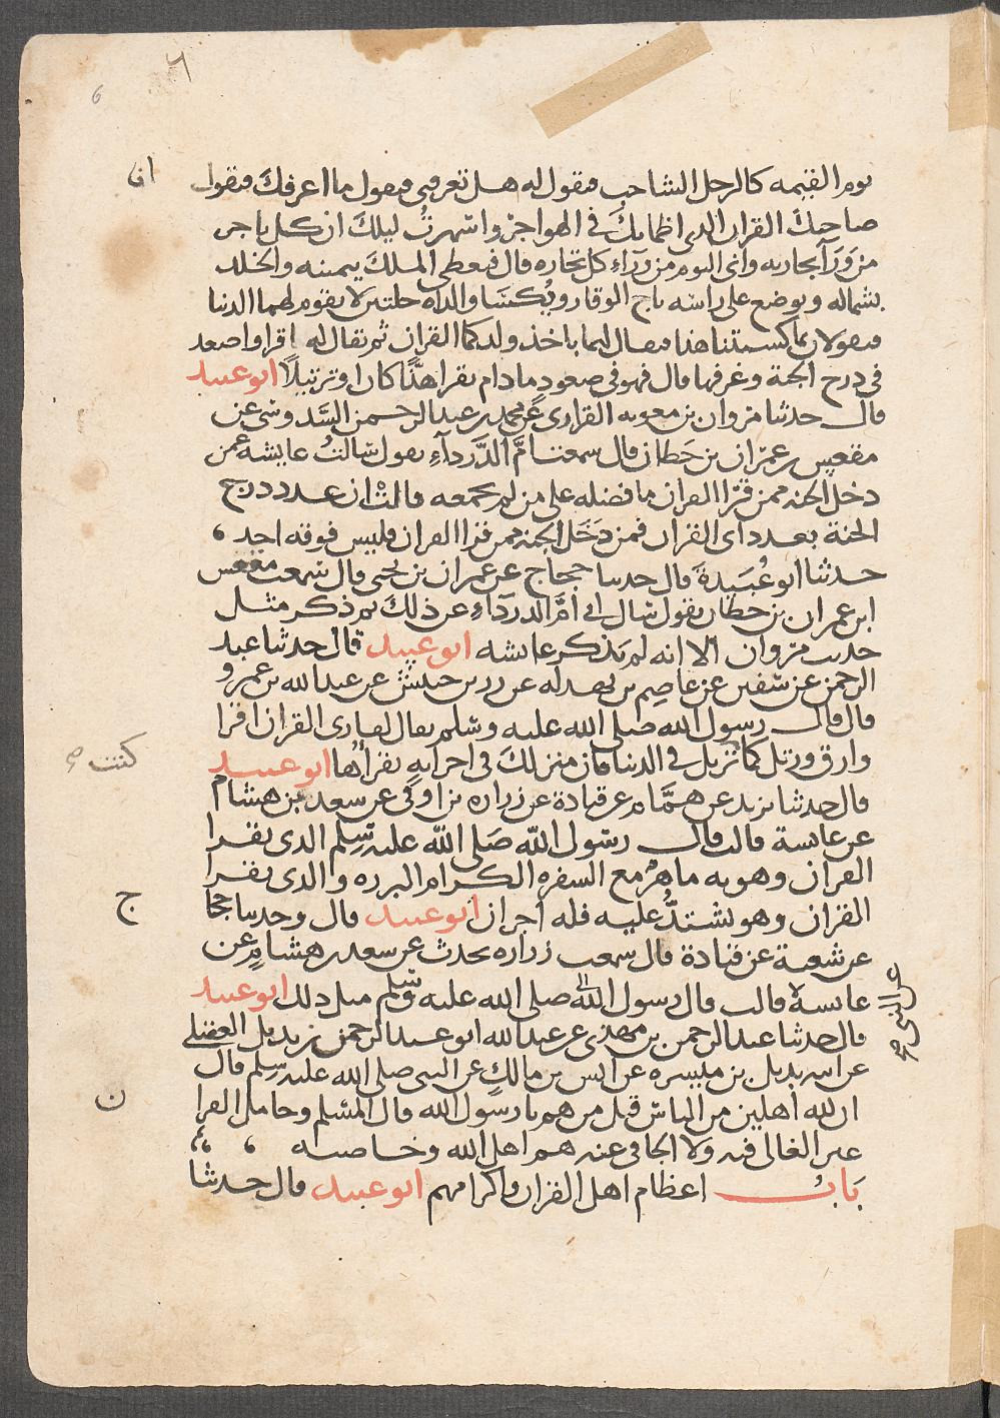 ٦
6
يوم القيمه كالرجل الشاحب فيقول له هل تعرفني فيقول ما اعرفك فيقول انا
صاحبك القران الذي اظماتك في الهواجر واسهرت ليلك ان كل تاجر
من ورآ تجارته واني اليوم من ورآء كل تجاره قال فيعطى الملك بيمينه والخلد
بشماله ويوضع على راسه تاج الوقار ويُكسَا والداه حلتين لا يقوم لهما الدنيا
فيقولان بما كسيتنا هذا فيقال لهما باخذ ولدكما القران ثم يقال له اقرا واصعد
في درج الجنة وغرفها قال فهو في صعود ما دام يقرا هذًّا كان او ترتيلًا ابو عبيد
قال حدثنا مروان بن معويه الفزاري عن محمد بن عبد الرحمن السدوسي عن
مقعس بن عمران بن حَطان قال سمعت امَّ الدَّردآءِ تقول سالتُ عايشه عمن
دخل الجنه ممن قرا القران ما فضله على من لم يجمعه قالت ان عدد درج
الجنة بعدد اى القران فمن دَخَل الجنه ممن قرا القران فليس فوقه احد ،
حدثنا ابو عُبَيدة قال حدثنا حجاج عن عمران بن يحيى قال سمعت مقعس
ابن عمران بن حطان يقول سال ابي امَّ الدردآءِ عن ذلك ثم ذكر مثل
حديث مروان الا انه لم يذكر عايشه ابو عبيد قال حدثنا عبد
الرحمن عن سفين عن عاصم بن بهدله عن زر بن حبيش عن عبد الله بن عمرو
قال قال رسول الله صلى الله عليه وسلم يقال لقارى القران اقرا
وارق ورتل كما ترتل في الدنيا فان منزلك في اخر ايه تقراُها ابو عبيد
كنت صح
قال حدثنا يزيد عن همَّام عن قتادة عن زراره بن اوفى عن سعد بن هشام
عن عايسة قالت قال رسول الله صَلى الله عليه وسلم الذى يقرا
القران وهو به ماهر مع السفره الكرام البرره والذى يقرا
القران وهو يشتدُّ عليه فله اجران ابو عبيد قال وحدثنا حجا
ج
عن شعبة عن قتادة قال سمعت زراره يحدث عن سعد بن هشام عن
عايسة قالت قال رسول الله صلى الله عليه وسلم مثل ذلك ابو عبيد
عن النبي صح
قال حدثنا عبد الرحمن بن مهدى عن عبد الله ابو عبد الرحمن بن بديل العقيلي
عن ابيه بديل بن ميسره عن انس بن مالك عن النبى صلى الله عليه وسلم قال
ان لله اهلين من الناس قيل من هم يا رسول الله قال المسلم وحامل القرا
ن
غير الغالى فيه ولا الجافى عنه هم اهل الله وخاصته ،
بَابُ اعظام اهل القران واكرامهم ابو عبيد قال حدثنا